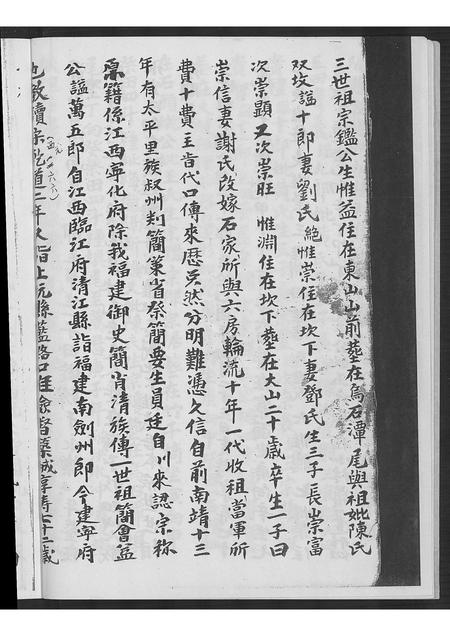 三世祖宗鑑公生惟益住在東山山前塟在烏石潭尾與祖妣陳氏
双坟謚十郎妻劉氏絕惟崇住在坎下妻鄧氏生三子長崇富
次崇顯又次崇旺 惟淵住在坎下塟在大山二十歲卒生一子曰
崇信妻謝氏改嫁石家所與六房輪流十年一代收祖當軍所
費十費主旨代口傳來歷昊然分明難憑久信自前南靖十三
年有太平里族叔州判簡策省祭簡要生員廷自川來認宗称
原籍係江西寧化府除我福建御史簡宵清族傳一世祖簡會益
公謚萬五郎自江西臨江府清江縣詣福建南劍州即今建寧府
也教讀宗乾道二年又詣上元縣藍路口 督築城享壽七十二歲